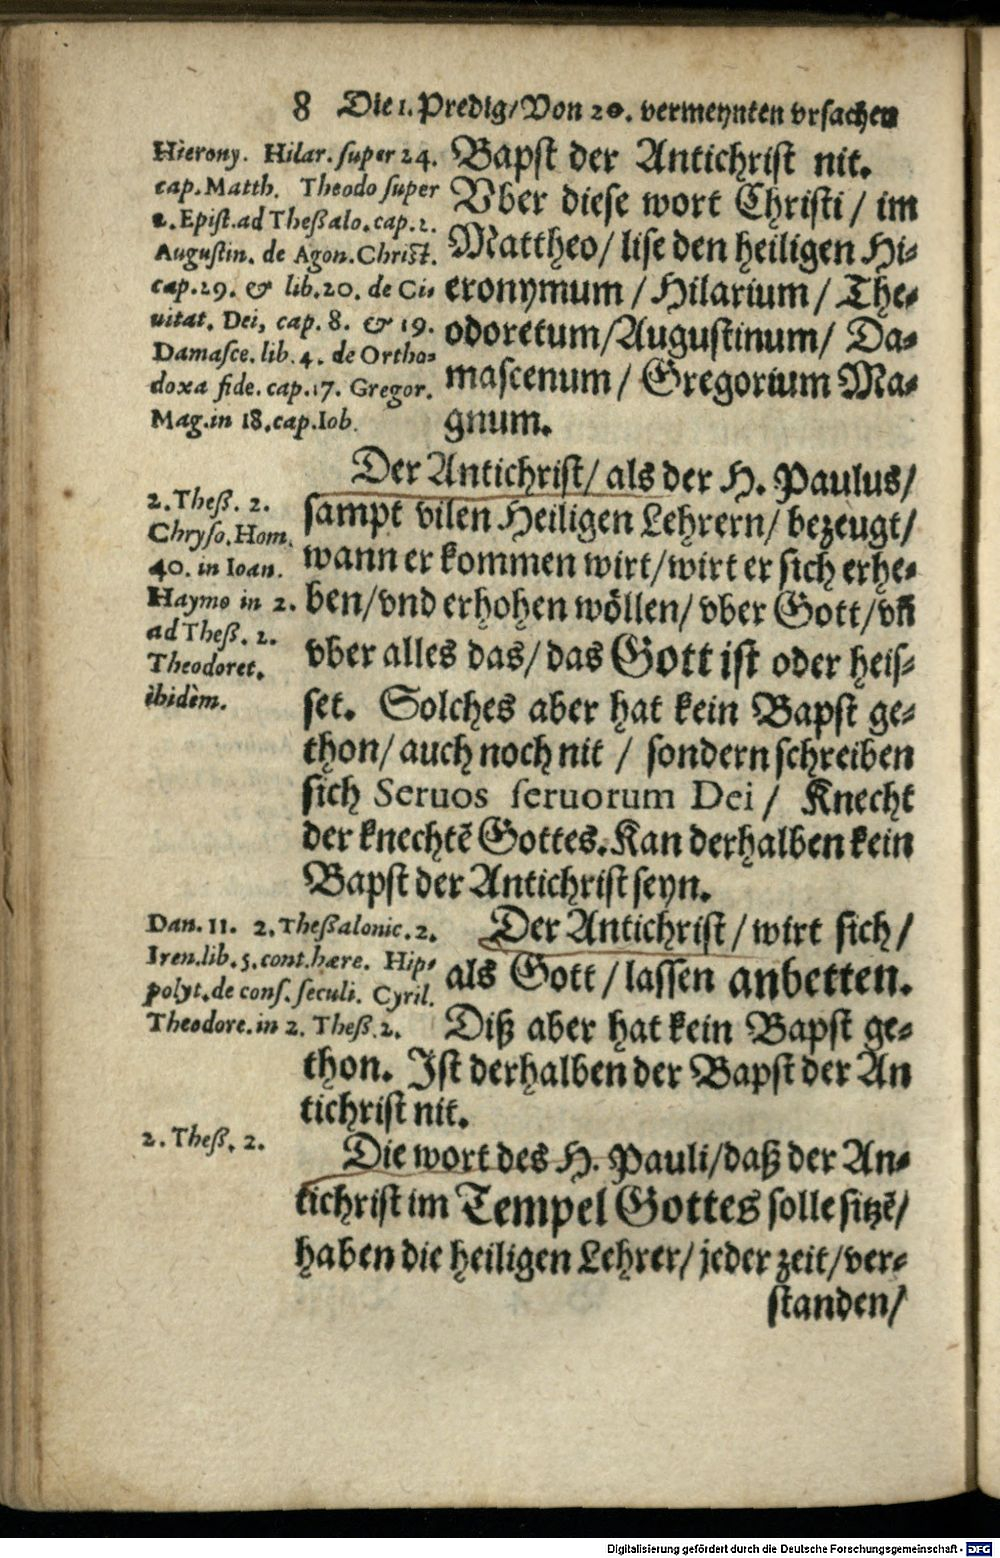 8 Die 1. Predig/Von 20. vermeynten vrsachen
Hierony. Hilar. super 24.
cap. Matth. Theodo super
2. Epist. ad Theßalo. cap. 2.
Augustin. de Agon. Christ.
cap. 29. & lib. 20. de Ci-
uitat. Dei, cap. 8. & 19.
Damasce. lib. 4. de Ortho-
doxa fide. cap. 17. Gregor.
Mag. in 18. cap. Iob.
Bapst der Antichrist nit.
Vber diese wort Christi/ im
Mattheo/ lise den heiligen Hi-
eronymum / Hilarium / The-
odoretum/Augustinum/ Da-
mascenum / Gregorium Ma-
gnum.
Der Antichrist/ als der H. Paulus/
sampt vilen Heiligen Lehrern/ bezeugt/
wann er kommen wirt/wirt er sich erhe-
ben/vnd erhohen wöllen/ vber Gott/vñ
vber alles das/ das Gott ist oder heis-
set. Solches aber hat kein Bapst ge-
thon/ auch noch nit / sondern schreiben
sich Seruos seruorum Dei / Knecht
der knechtẽ Gottes. Kan derhalben kein
Bapst der Antichrist seyn.
2. Theß. 2.
Chryso. Hom.
40. in Ioan.
Haymo in 2.
ad Theß. 2.
Theodoret.
ibidèm.
Dan. 11. 2. Theßalonic. 2.
Iren. lib. 5. cont. hære. Hip-
polyt. de cons. seculi. Cyril.
Theodore. in 2. Theß. 2.
Der Antichrist / wirt sich /
als Gott / lassen anbetten.
Diß aber hat kein Bapst ge-
thon. Ist derhalben der Bapst der An
tichrist nit.
2. Theß. 2.
Die wort des H. Pauli/daß der An-
tichrist im Tempel Gottes solle sitzẽ/
haben die heiligen Lehrer/ jeder zeit/ver-
standen/
Digitalisierung gefördert durch die Deutsche Forschungsgemeinschaft - DFG